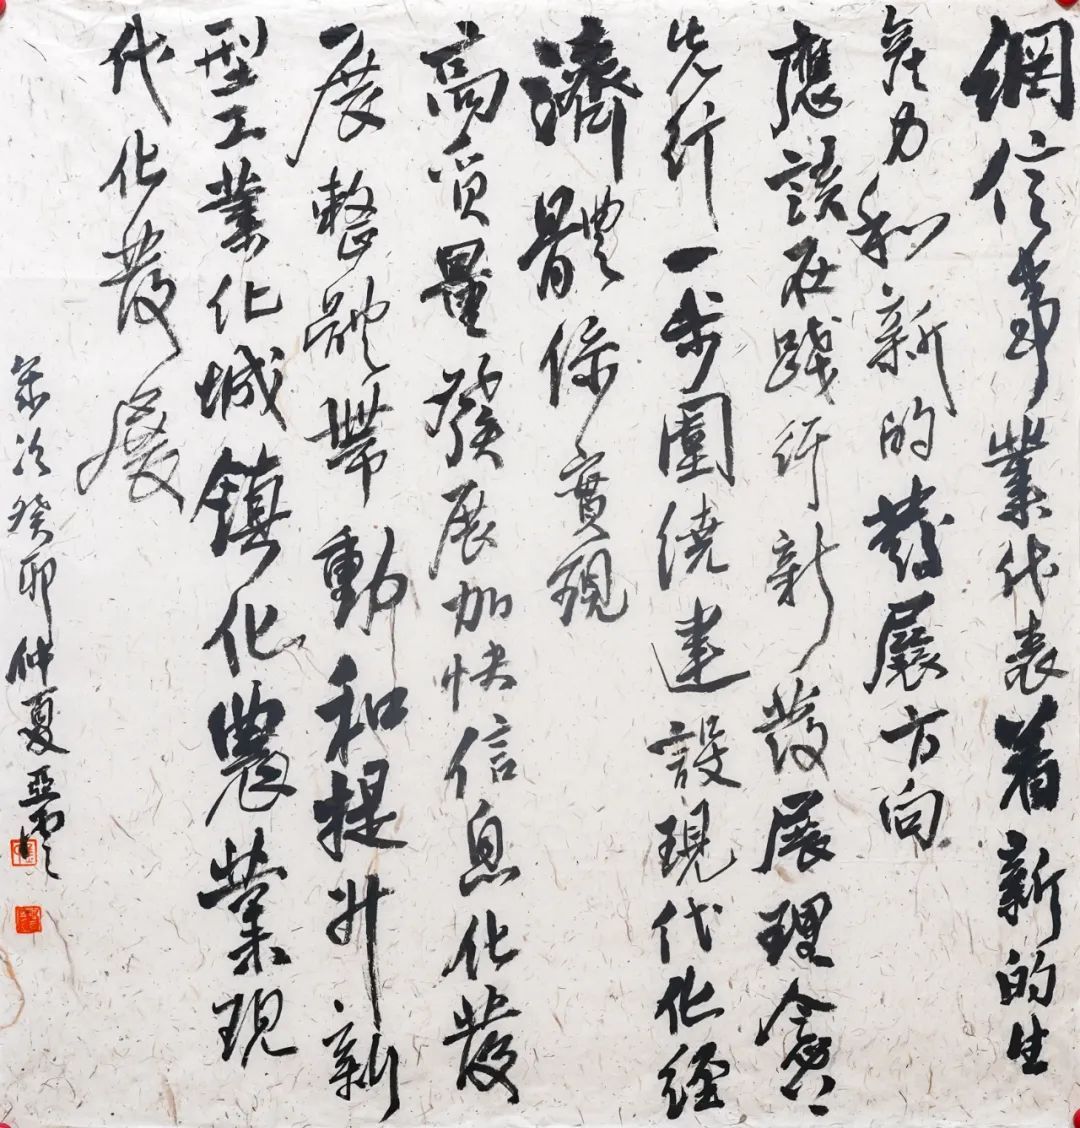 網信事業代表着新的生
產力和新的發展方向
應該在踐行新發展理念
先行一步圍繞建設現代化經
濟體係實現
高质量發展加快信息化發
展整體帶動和提升新
型工業化城鎮化農業現
代化發展
歲次癸卯仲夏亞